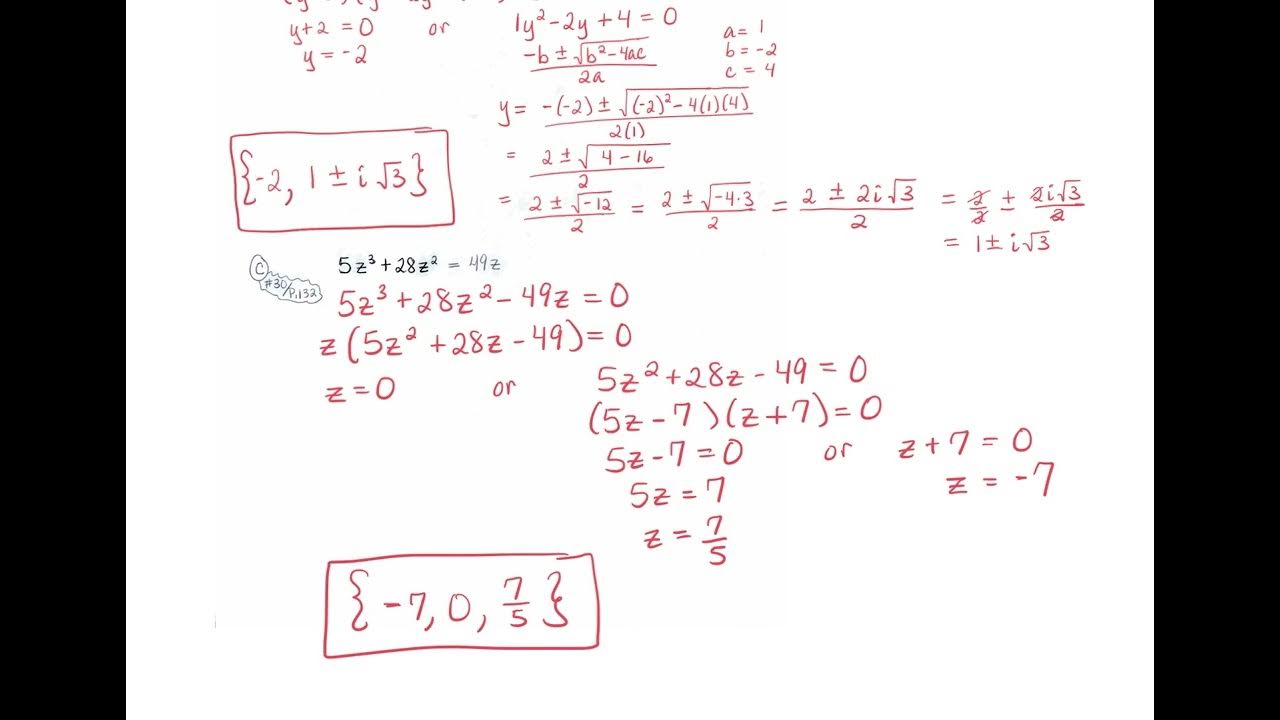 y+2 = 0 or 1y² - 2y + 4 = 0
y = -2
a = 1
b = -2
c = 4
-b ± √(b² - 4ac) / 2a
y = -(-2) ± √((-2)² - 4(1)(4)) / 2(1)
= 2 ± √(4 - 16) / 2
= 2 ± √-12 / 2 = 2 ± √-4·3 / 2 = 2 ± 2i√3 / 2 = 2/2 ± 2i√3/2
= 1 ± i√3
{-2, 1 ± i√3}
C
#30/P.132
5z³ + 28z² = 49z
5z³ + 28z² - 49z = 0
z(5z² + 28z - 49) = 0
z = 0 or 5z² + 28z - 49 = 0
(5z - 7)(z + 7) = 0
5z - 7 = 0 or z + 7 = 0
5z = 7 z = -7
z = 7/5
{-7, 0, 7/5}